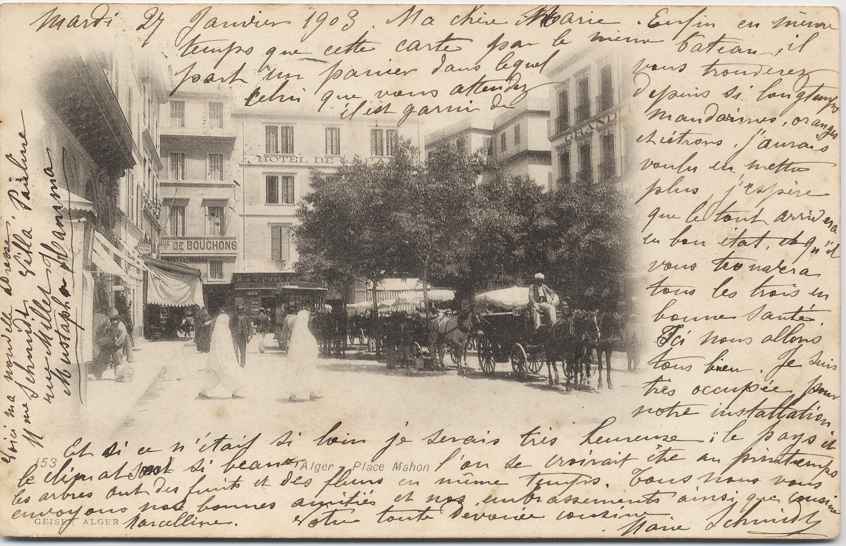 Mardi 27 Janvier 1903. Ma chère Marie. Enfin en même
temps que cette carte par le même bateau, il
part un panier dans lequel vous trouverez
celui que vous attendez depuis si longtemps
il est garni de mandarines, oranges
et citrons. J'aurais
voulu en mettre
plus, j'espère
que le tout arrivera
en bon état, et qu'il
vous trouvera
tous les trois en
bonne santé.
Ici nous allons
tous bien. Je suis
très occupée pour
notre installation.
Et si ce n'était si loin je serais très heureuse ; le pays et
le climat sont si beaux l'on se croirait été au printemps
les arbres ont des fruits et des fleurs en même temps. Tous nous vous
envoyons nos bonnes amitiés et nos embrassements ainsi que cousine
Marcelline. votre toute dévouée cousine
Marie Schmidt
Voici ma nouvelle adresse.
Mme Schmidt Villa Pauline
rue Millet
Mustapha
HOTEL DE
DE BOUCHONS
153
Alger - Place Mahon
GEISER ALGER